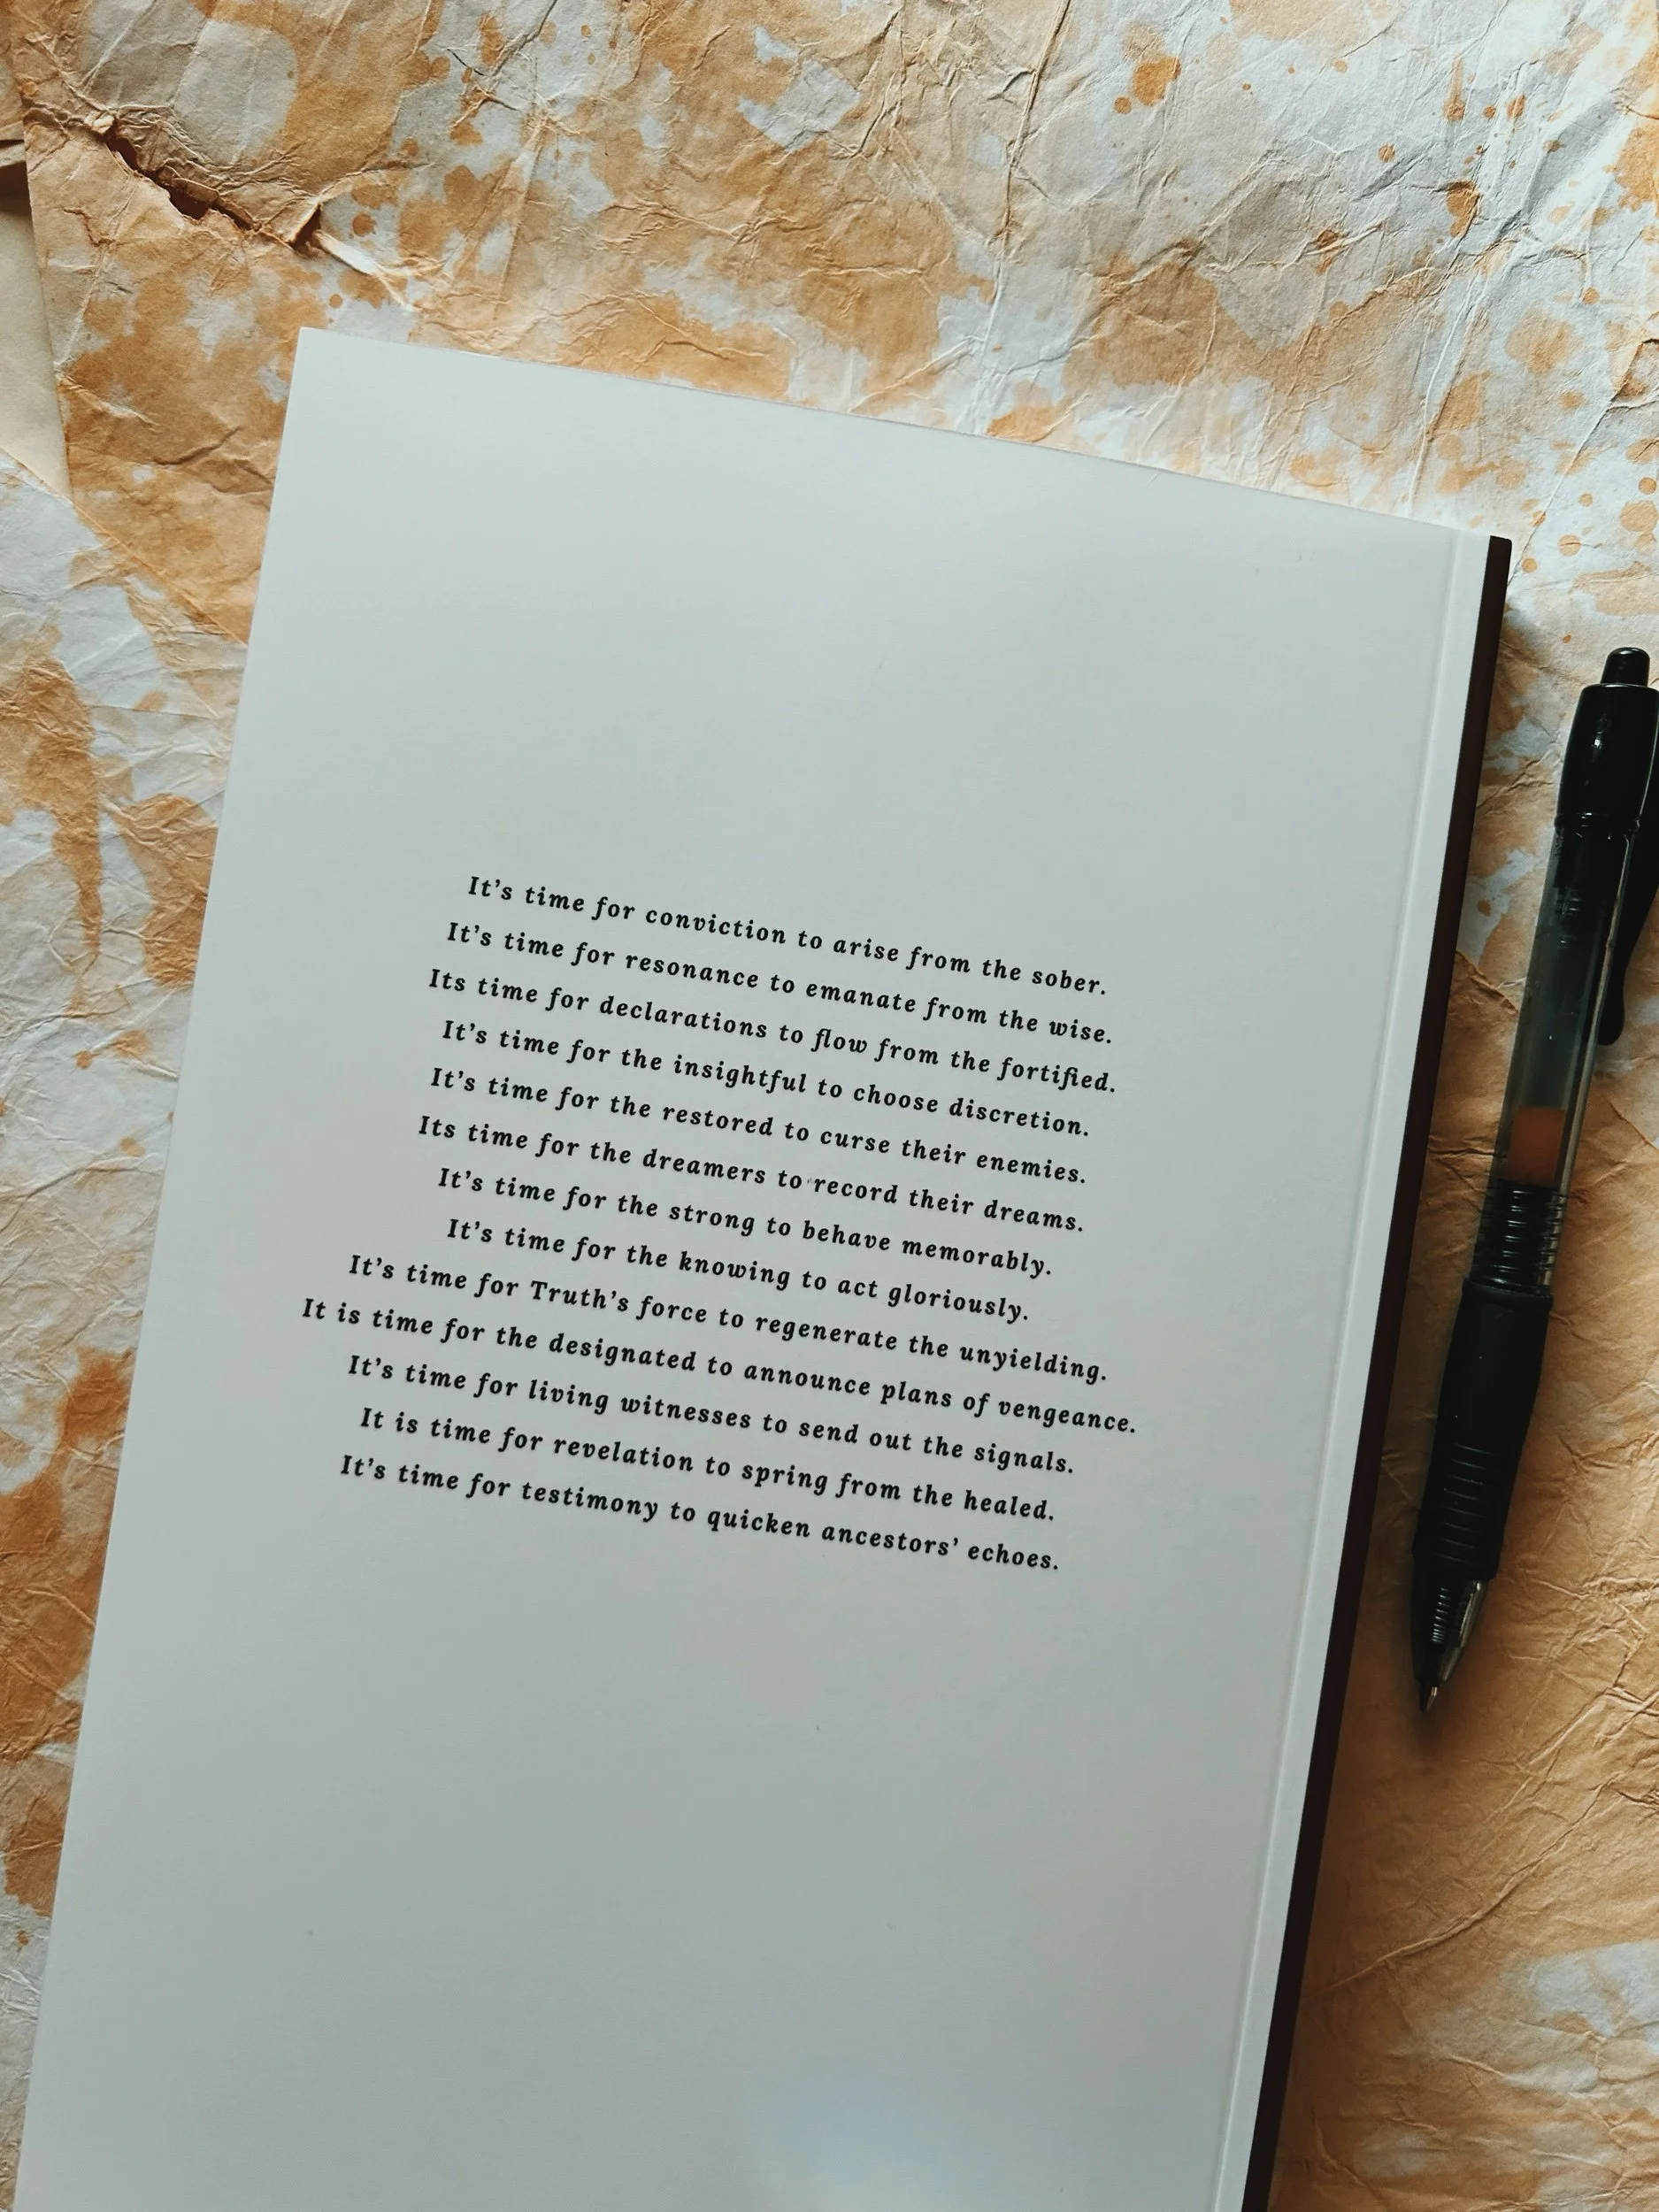 It’s time for conviction to arise from the sober.
It’s time for resonance to emanate from the wise.
Its time for declarations to flow from the fortified.
It’s time for the insightful to choose discretion.
It’s time for the restored to curse their enemies.
Its time for the dreamers to record their dreams.
It’s time for the strong to behave memorably.
It’s time for the knowing to act gloriously.
It’s time for Truth’s force to regenerate the unyielding.
It is time for the designated to announce plans of vengeance.
It’s time for living witnesses to send out the signals.
It is time for revelation to spring from the healed.
It’s time for testimony to quicken ancestors’ echoes.